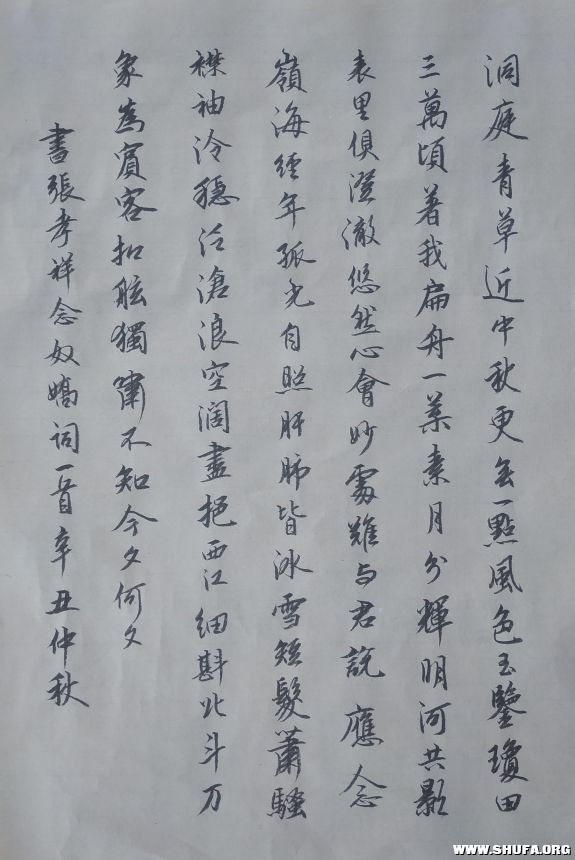 洞庭青草近中秋更無一點風色玉鑒瓊田
三萬頃著我扁舟一葉素月分輝明河共影
表里俱澄澈悠然心會妙處難与君説應念
嶺海經年孤光自照肝肺皆冰雪短髮蕭騷
襟袖冷穩泛滄浪空闊盡挹西江細斟北斗万
象為賓客扣舷獨嘯不知今夕何夕
書張孝祥念奴嬌词一首辛丑仲秋
WWW.SHUFA.ORG